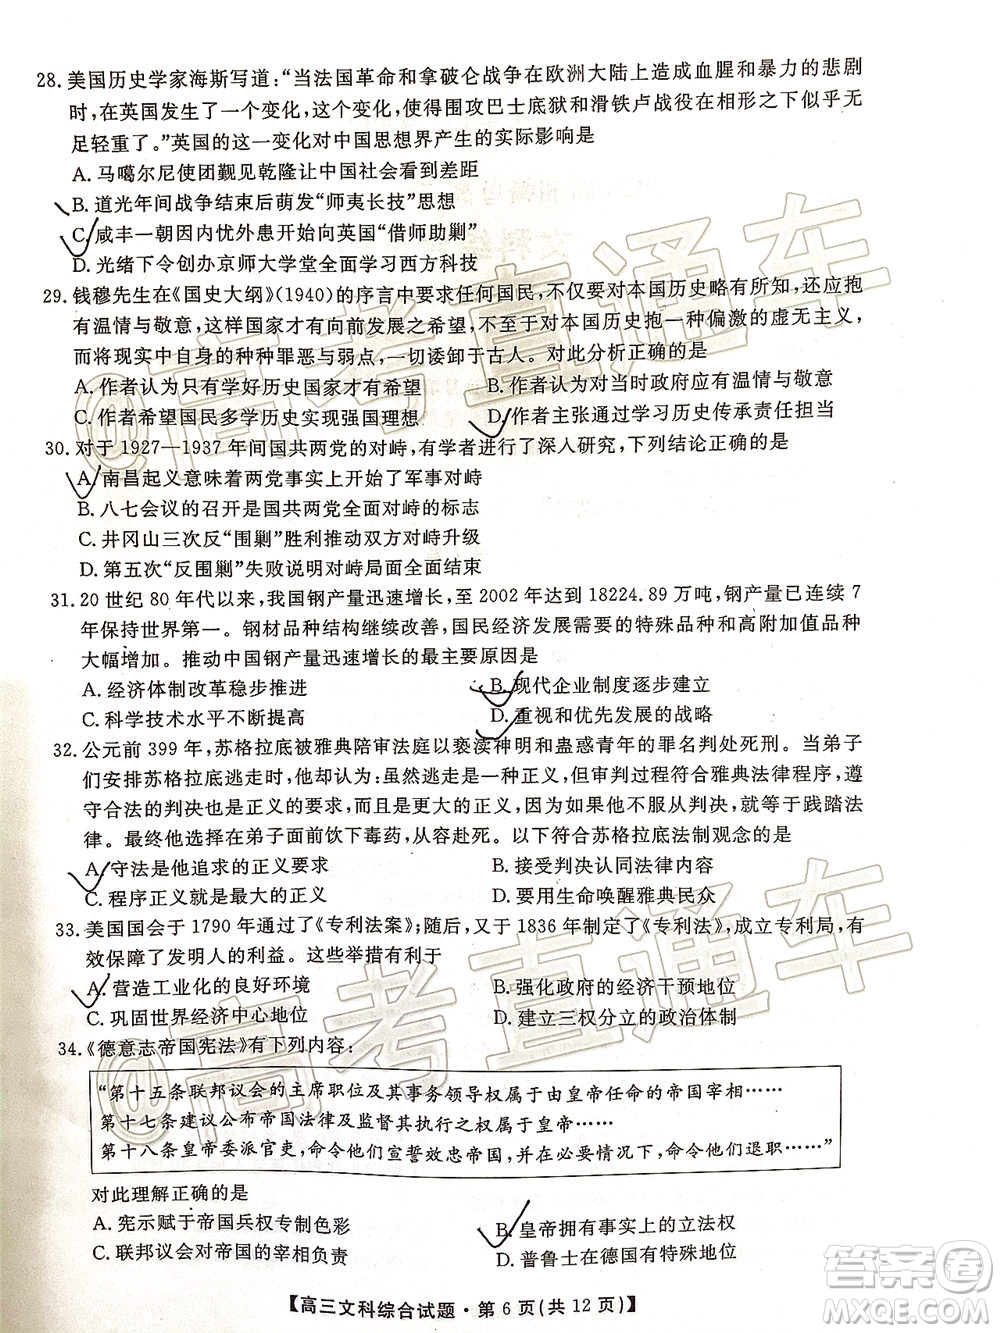 28. 美国历史学家海斯写道：“当法国革命和拿破仑战争在欧洲大陆上造成血腥和暴力的悲剧
时，在英国发生了一个变化，这个变化，使得围攻巴士底狱和滑铁卢战役在相形之下似乎无
足轻重了。”英国的这一变化对中国思想界产生的实际影响是
A. 马噶尔尼使团觐见乾隆让中国社会看到差距
B. 道光年间战争结束后萌发“师夷长技”思想
C. 咸丰一朝因内忧外患开始向英国“借师助剿”
D. 光绪下令创办京师大学堂全面学习西方科技
29. 钱穆先生在《国史大纲》(1940)的序言中要求任何国民，不仅要对本国历史略有所知，还应抱
有温情与敬意，这样国家才有向前发展之希望，至少不要对本国历史抱一种偏激的虚无主义，
而将现实中自身的种种罪恶与弱点，一切诿卸于古人。对此分析正确的是
A. 作者认为只有学好历史国家才有希望
B. 作者认为对当时政府应有温情与敬意
C. 作者希望国民多学历史实现强国理想
D. 作者主张通过学习历史传承责任担当
30. 对于 1927—1937 年间国共两党的对峙，有学者进行了深入研究，下列结论正确的是
A. 南昌起义意味着两党事实上开始了军事对峙
B. 八七会议的召开是国共两党全面对峙的标志
C. 井冈山三次反“围剿”胜利推动双方对峙升级
D. 第五次“反围剿”失败说明对峙局面全面升级
31. 20 世纪 80 年代以来，我国钢产量迅速增长，至 2002 年达到 18224.89 万吨，钢产量已连续 7
年保持世界第一。钢材品种结构继续改善，国民经济发展需要的特殊品种和高附加值品种
大幅增加。推动中国钢产量迅速增长的最主要原因是
A. 经济体制改革稳步推进
B. 现代企业制度逐步建立
C. 科学技术水平不断提高
D. 重视和优先发展的战略
32. 公元前 399 年，苏格拉底被雅典陪审法庭以亵渎神明和蛊惑青年的罪名判处死刑。当弟子
们安排苏格拉底逃走时，他认为虽然逃走是一种正义，但审判过程符合雅典法律程序，遵
守合法的判决也是正义的要求，而且是更大的正义，因为如果他不服从判决，就是在践踏法
律。最终他选择在弟子面前饮下毒药，从容赴死。以下符合苏格拉底法制观念的是
A. 守法是他追求的正义要求
B. 接受判决认同法律内容
C. 程序正义就是最大的正义
D. 要用生命唤醒雅典民众
33. 美国国会于 1790 年通过了《专利法案》；随后，又于 1836 年制定了《专利法》，成立专利局，有
效保障了发明人的利益。这些举措有利于
A. 营造工业化的良好环境
B. 强化政府的经济干预地位
C. 巩固世界经济中心地位
D. 建立三权分立的政治体制
34. 《德意志帝国宪法》有下列内容：
“第十五条联邦议会的主席职位及其事务领导权属于由皇帝任命的帝国宰相……
第十七条建议公布帝国法律及监督其执行之权属于皇帝……
第十八条皇帝委派官吏，命令他们宣誓效忠帝国，并在必要情况下，命令他们退职……”
对此理解正确的是
A. 宪示赋于帝国兵权专制色彩
B. 皇帝拥有事实上的立法权
C. 联邦议会对帝国的宰相负责
D. 普鲁士在德国有特殊地位
【高三文科综合试题·第 6 页(共 12 页)】
@高考直通车
@高考直通车
答案圈
MXQE.COM